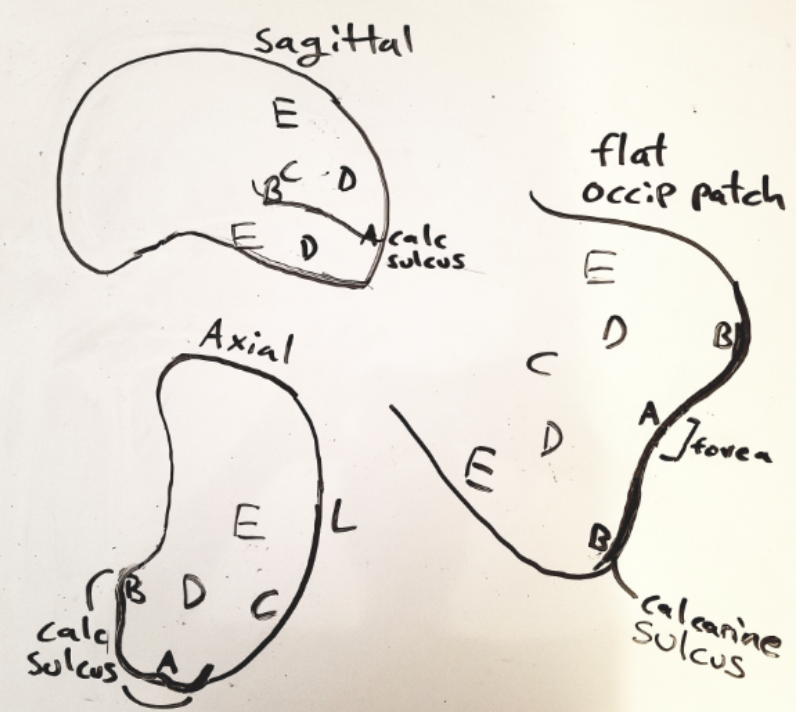 Sagittal
E
C D
B
E D A calc
sulcus
flat
occip patch
E
D B
C
A
D ] fovea
E
B
calcarine
sulcus
Axial
E L
B D C
calc
sulcus A